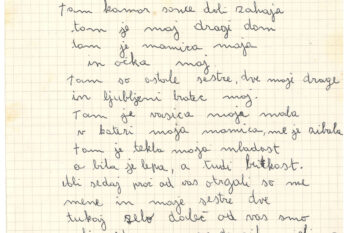 Tam kamor sonce dol zahaja
tam je moj dragi dom
tam je mamica moja
in očka moj.
Tam so ostale sestre, dve moji drage
in ljubljeni bratec moj.
Tam je vasica moja mala
v kateri moja mamica, me je zibala
tam je tekla moja mladost
a bila je lepa, a tudi bridkost.
Ali sedaj proč od vas otrgali so me
mene in moje sestre dve
tukaj zelo daleč od vas smo